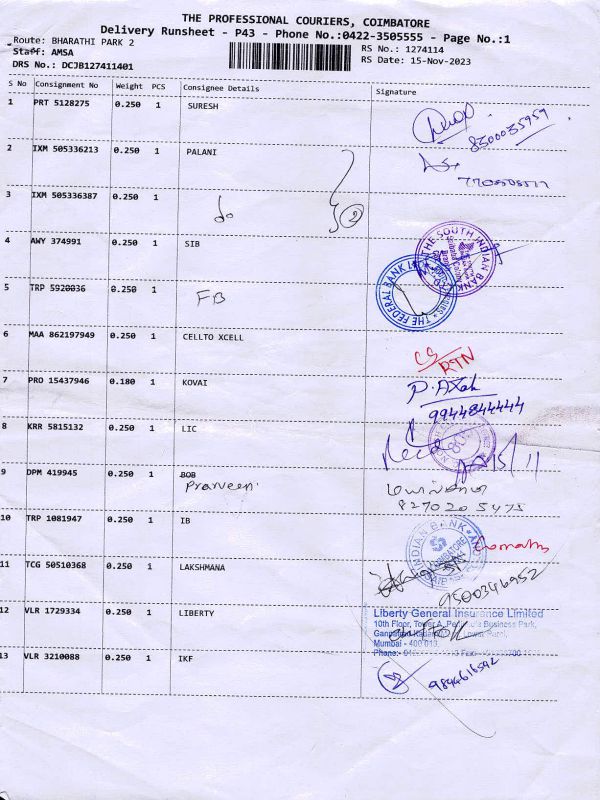 THE PROFESSIONAL COURIERS, COIMBATORE
Delivery Runsheet - P43 - Phone No.:0422-3505555 - Page No.:1
Route: BHARATHI PARK 2
RS No.: 1274114
Staff: AMSA
RS Date: 15-Nov-2023
DRS No.: DCJB127411401
S No Consignment No Weight PCS Consignee Details Signature
1 PRT 5128275 0.250 1 SURESH
8300035959
2 IXM 505336213 0.250 1 PALANI
3 IXM 505336387 0.250 1 do 2
4 AWY 374991 0.250 1 SIB
THE SOUTH INDIAN BANK
5 TRP 5920036 0.250 1 FB
THE FEDERAL BANK
6 MAA 862197949 0.250 1 CELLTO XCELL
RTN
7 PRO 15437946 0.180 1 KOVAI
9944844444
8 KRR 5815132 0.250 1 LIC
9 DPM 419945 0.250 1 BOB
Praveen
827020 5475
10 TRP 1081947 0.250 1 IB
INDIAN BANK
11 TCG 50510368 0.250 1 LAKSHMANA
9500346952
12 VLR 1729334 0.250 1 LIBERTY
Liberty General Insurance Limited
10th Floor, Tower A, Peninsula Business Park,
Lower Parel,
Mumbai - 400 013.
Phone:
13 VLR 3210088 0.250 1 IKF
9844616592